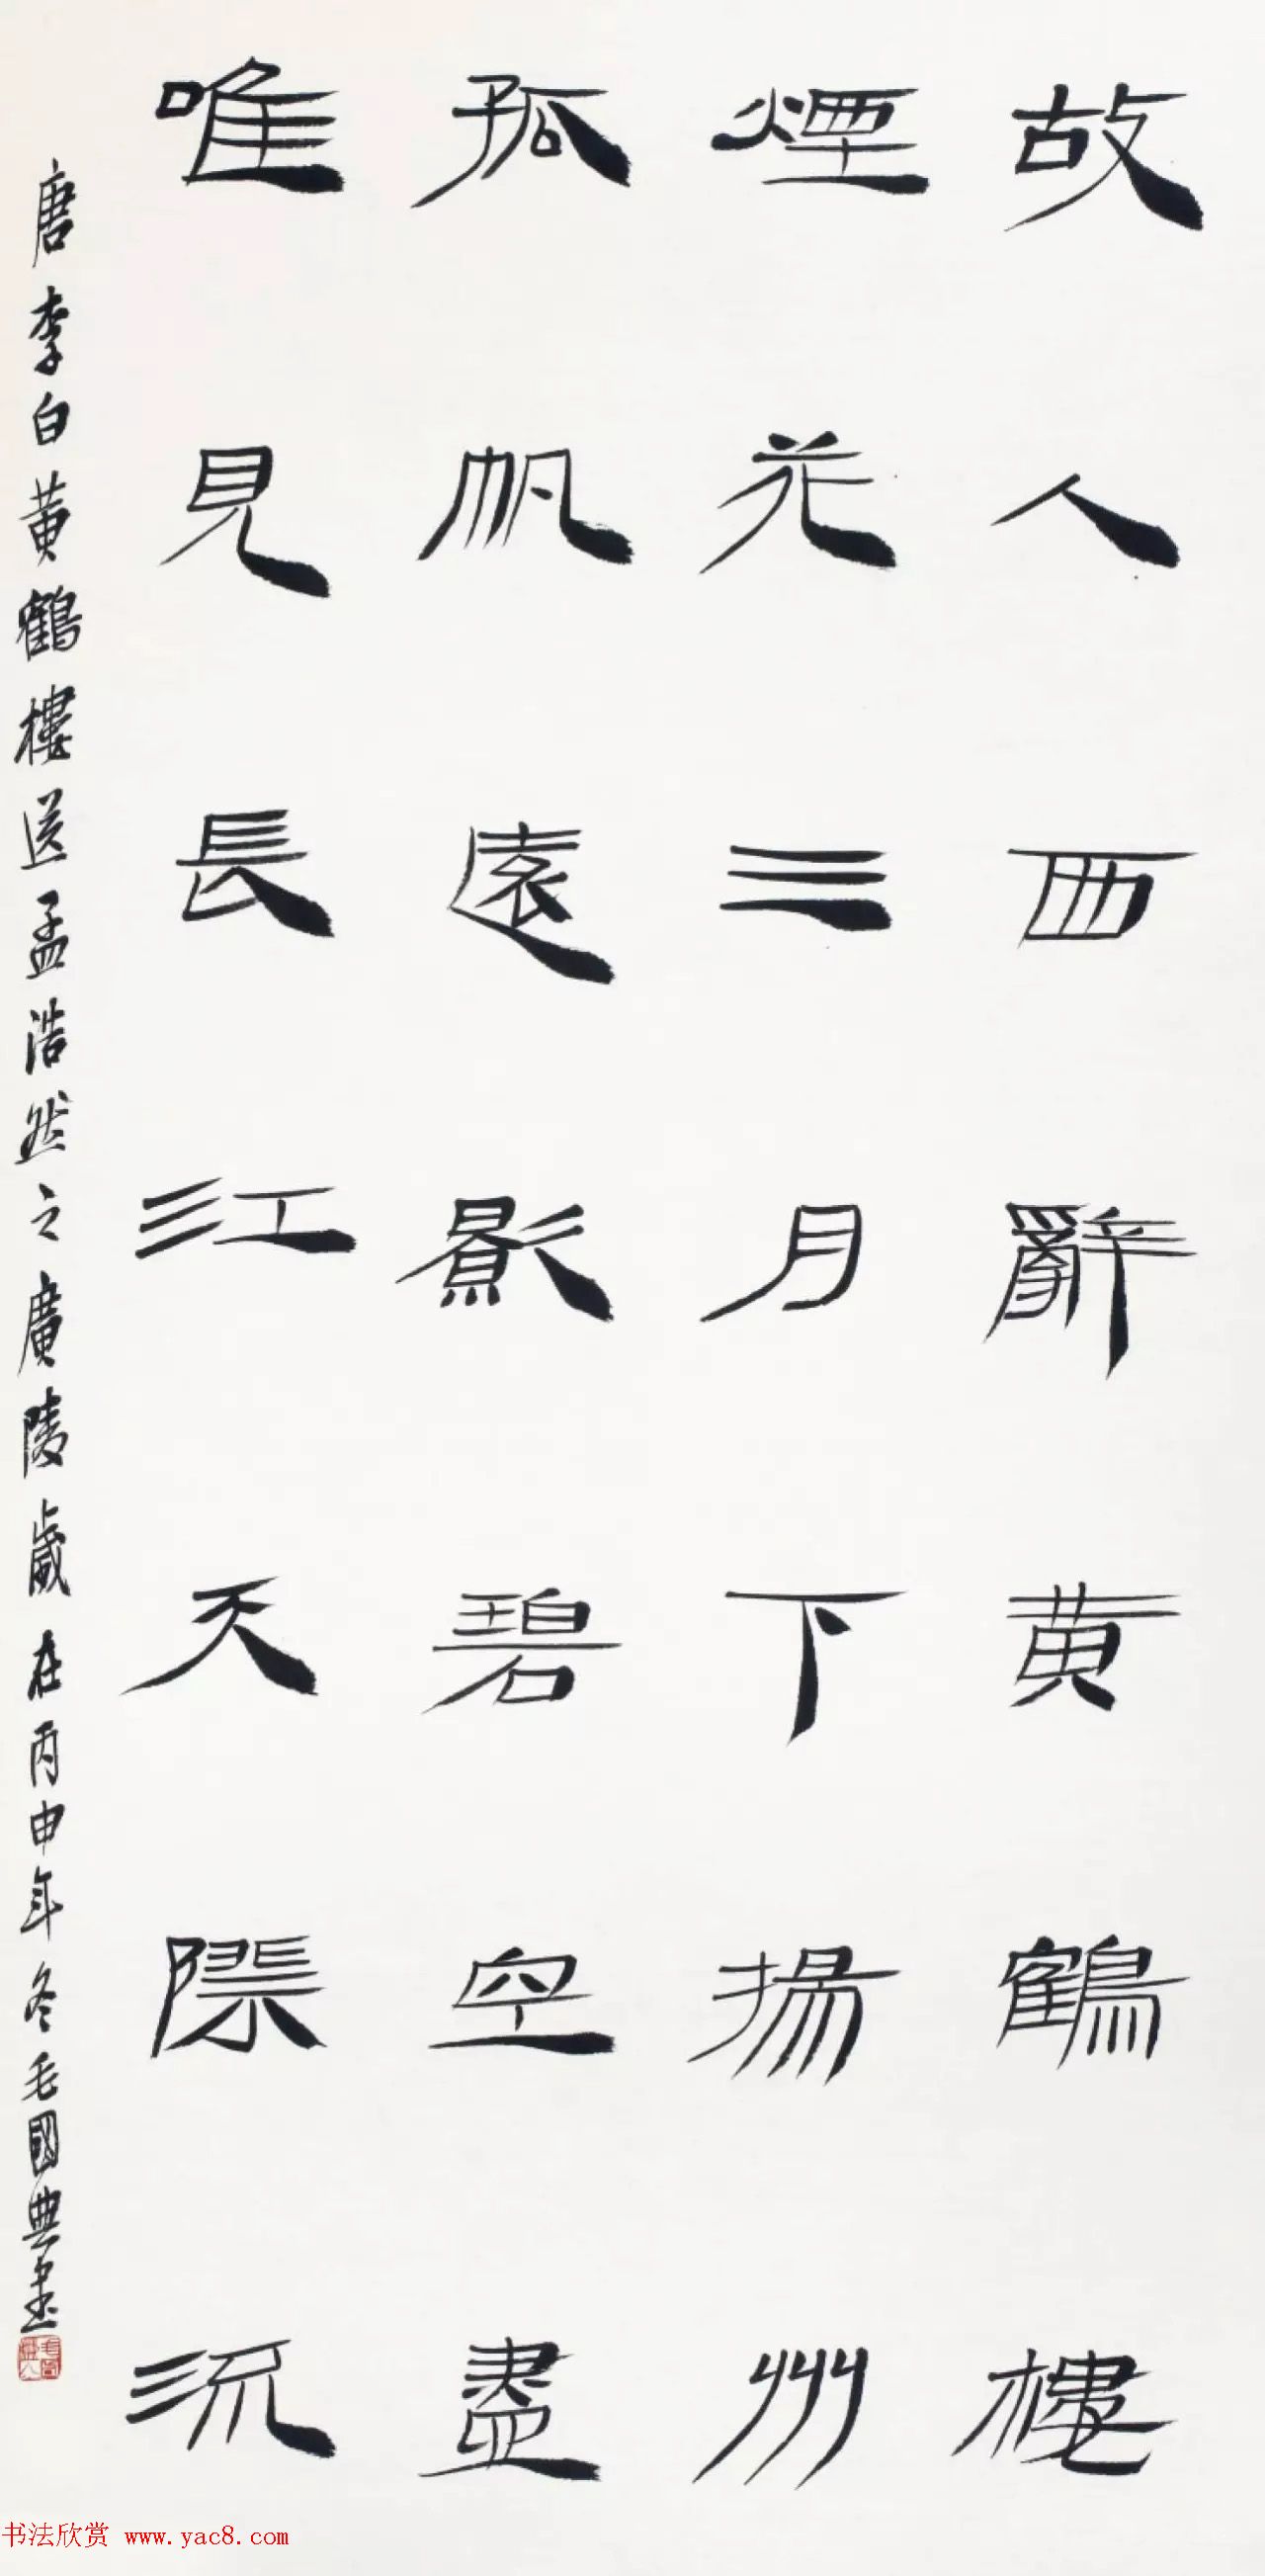 故人西辭黄鶴樓
煙花三月下揚州
孤帆遠影碧空盡
唯見長江天際流
唐李白黄鶴樓送孟浩然之廣陵歲在丙申年冬毛國典書
书法欣赏 www.yac8.com